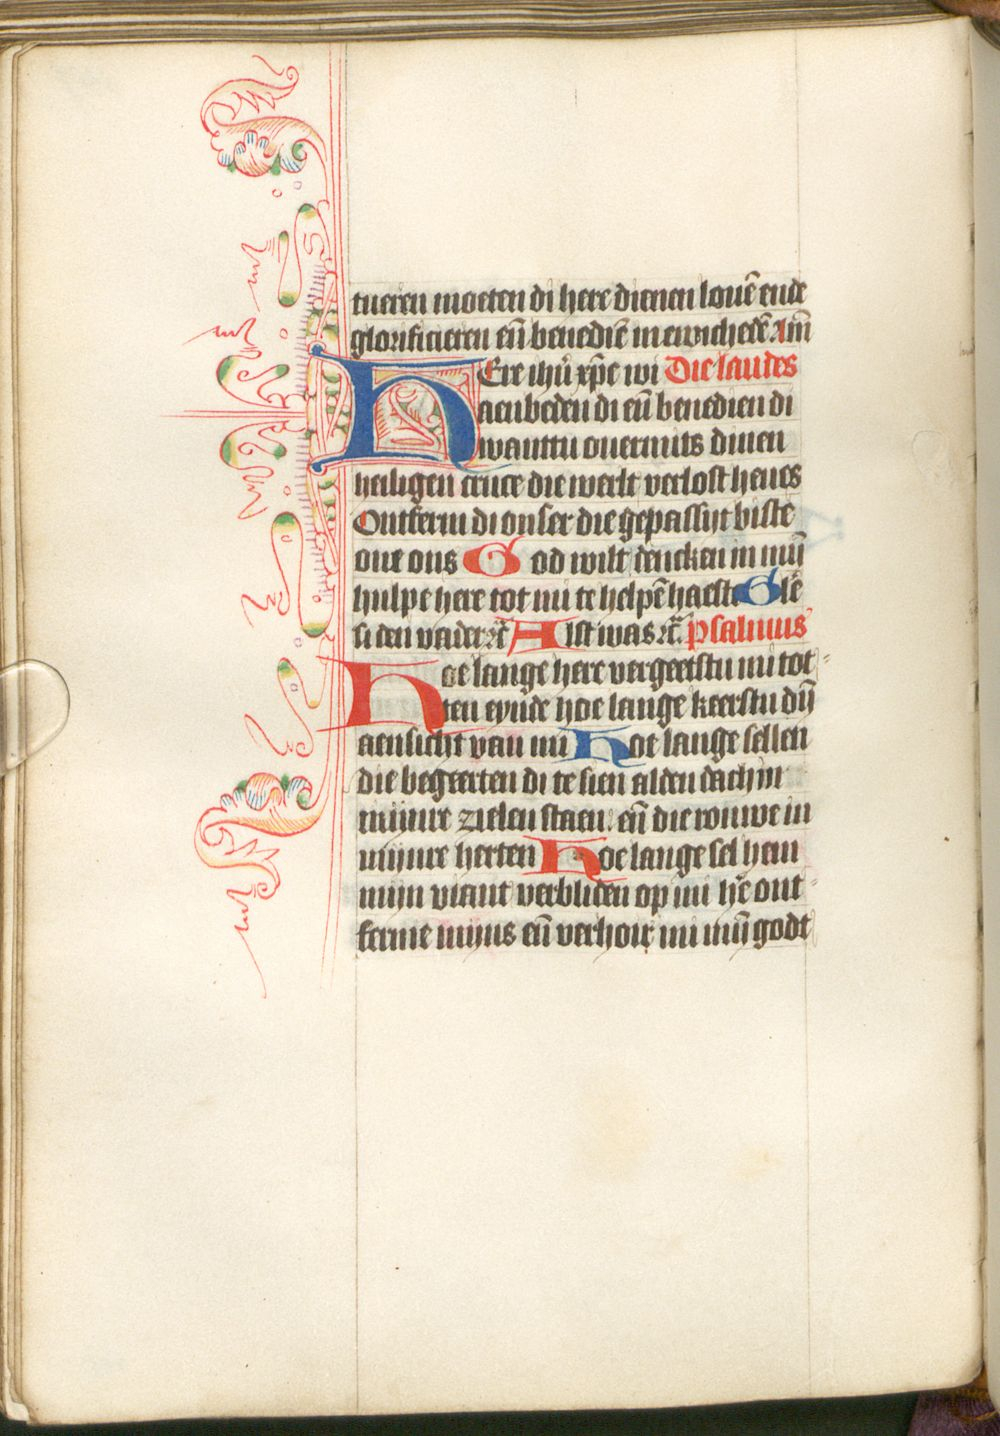 tueren moeten di here dienen louē ende
glorificieren eñ benediē in ewichedē Amē
HEre ihū xp̄e wi Die laudes
aenbeden di eñ benedien di
wanttu ouermits dinen
heiligen cruce die werlt verlost heues
Ontferm di onser die gepassijt biste
oue ons God wilt dencken in mijn̄
hulpe here tot mi te helpē haeste Glē
si den vader ⁊c̄ Alst was ⁊c̄. Psalmus
Hoe lange here vergeetstu mi tot
ten eynde hoe lange keerstu dijn̄
aensicht van mi Hoe lange sellen
die begeerten di te sien alden dach in
mijnre zielen staen. eñ die rouwe in
mijnre herten Hoe lange sel hem
mijn viant verbliden op mi hēr ont
ferme mijns eñ verhoir mi mijn̄ godt